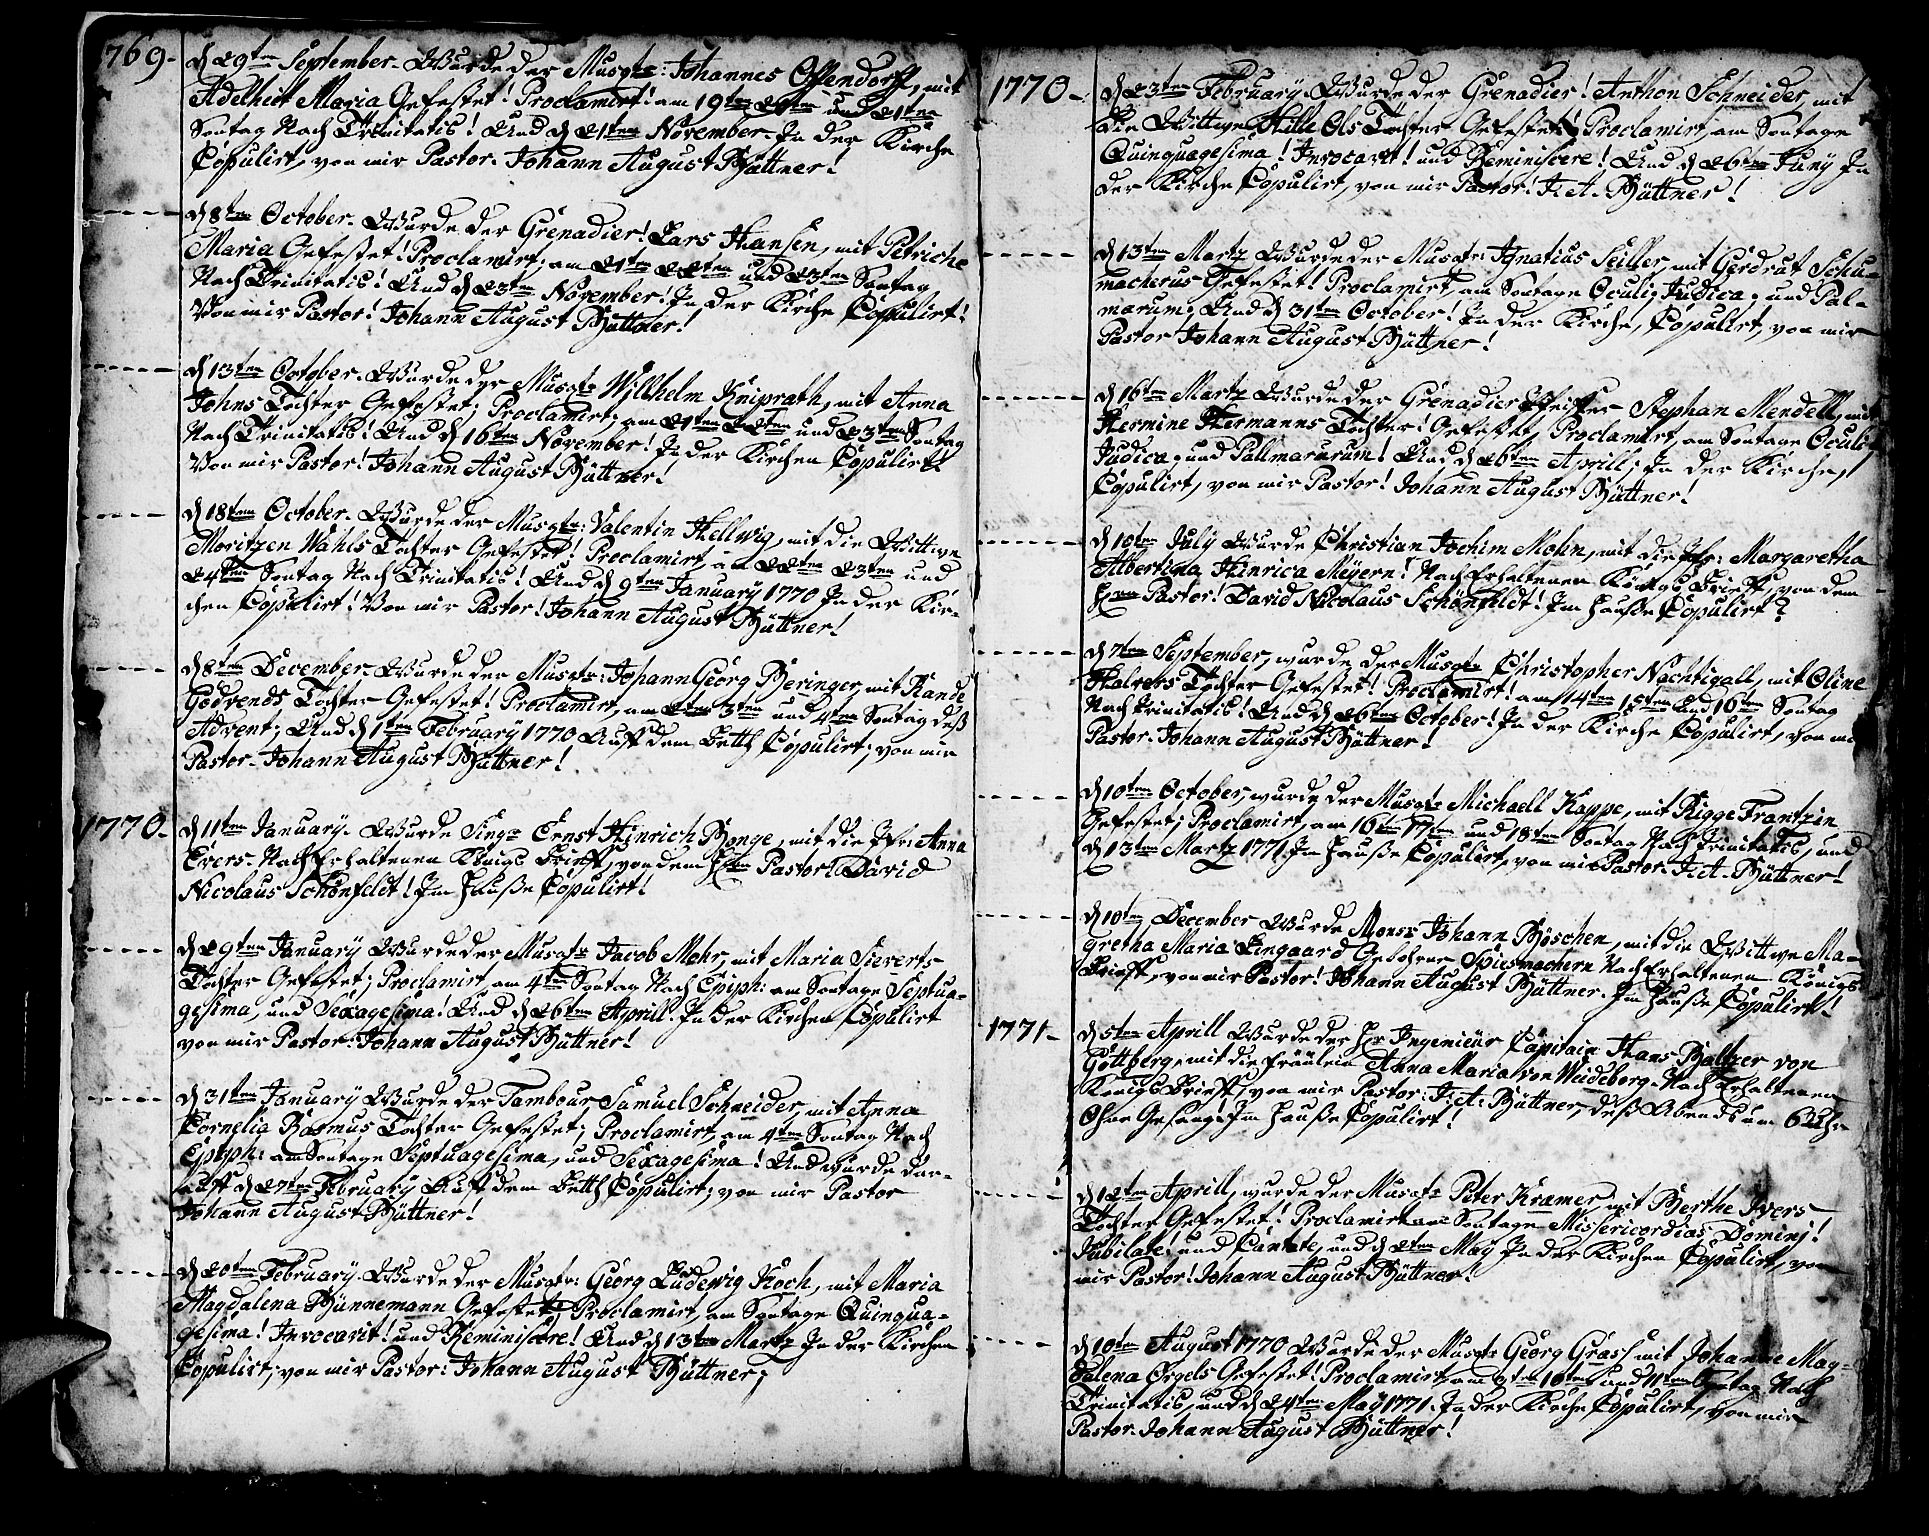 1769. d 29ten September. Wurde der Musqtr: Johannes Offendorff, mit
Adelheit Maria Gefestet! Proclamirt! am 19ten 20ten und 21ten
Sontag Nach Trinitatis! Und d 21ten November. In der Kirche
Copulirt, von mir Pastor. Johann August Büttner!
d 8ten October. Wurde der Grenadier! Lars Hansen, mit Petriche
Maria Gefestet! Proclamirt; am 21ten 22ten und 23ten Sontag
Nach Trinitatis! Und d 23ten November! In der Kirche Copulirt!
Von mir Pastor! Johann August Büttner!
d 13ten October. Wurde der Musqtr Willhelm Kniprath, mit Anna
Johns Tochter Gefestet; Proclamirt; am 21ten 22ten und 23ten Sontag
Nach Trinitatis! Und d 16ten November! In der Kirchen Copulirt!
Von mir Pastor! Johann August Büttner!
d 18ten October. Wurde der Musqtr: Valentin Hellwig, mit die Wittwe
Moritzen Wahls Tochter Gefestet! Proclamirt, am 22ten 23ten und
24ten Sontag Nach Trinitatis! Und d 9ten January 1770 In der Kir-
chen Copulirt! Von mir Pastor! Johann August Büttner!
d 8ten December. Wurde der Musqtr: Johann Georg Beringer, mit Rande
Godvends Tochter Gefestet! Proclamirt, am 2ten 3ten und 4ten Sontag deß
Advent; Und d 1ten February 1770 Auff dem Betth Copulirt; von mir
Pastor. Johann August Büttner!
1770. d 11ten January. Wurde Singr Ernst Hinrich Bonge, mit die Jfr: Anna
Evers. Nach Erhaltenen Königs Brieff, von dem Hrn Pastor! David
Nicolaus Schönfeldt! Im Hauße Copulirt!
d 29ten January Wurde der Musqtr Jacob Mohr, mit Maria Sieverts
Tochter Gefestet; Proclamirt, am 4ten Sontag Nach Epiph: am Sontage Septua-
gesima, und Sexagesima! Und d 26ten Aprill. In der Kirchen Copulirt
von mir Pastor: Johann August Büttner!
d 31ten January Wurde der Tambour Samuel Schneider, mit Anna
Cornelia Rasmus Tochter Gefestet; Proclamirt, am 4ten Sontag Nach
Epiph: am Sontage Septuagesima, und Sexagesima! Und wurde dar-
auff d 27ten February Auff dem Betth Copulirt; von mir Pastor
Johann August Büttner!
d 20ten February. Wurde der Musqtr: Georg Ludewig Koch, mit Maria
Magdalena Bünnemann Gefestet! Proclamirt, am Sontage Quinqua-
gesima! Invocavit! und Reminiscere! Und d 13ten Martz In der Kirchen
Copulirt; von mir Pastor: Johann August Büttner;
1770. d 23ten February. Wurde der Grenadier! Anthon Schneider, mit
die Wittwe, Hille Ols Tochter Gefestet! Proclamirt, am Sontage
Quinquagesima! Invocavit! und Reminiscere! Und d 26ten Juny In
der Kirche Copulirt, von mir Pastor! J. A. Büttner!
d 13ten Martz Wurde der Musqtr Ignatius Seiller, mit Gerdrut Schu-
macherus Gefestet! Proclamirt, am Sontage Oculi; Judica; und Pal-
marum; Und d 31ten October! In der Kirche, Copulirt, von mir
Pastor Johann August Büttner!
d 16ten Martz Wurde der Grenadier Pfeiffer Stephan Mendell, mit
Hermine Hermanns Tochter! Gefestet, Proclamirt, am Sontage Oculi,
Judica; und Pallmarurum! Und d 26ten Aprill; In der Kirche,
Copulirt, von mir Pastor! Johann August Büttner!
d 10ten July Wurde Christian Jochim Mohn, mit die Jfr: Margaretha
Albertina Hinrica Meyern! Nach Erhaltenen Königs Brieff, von dem
Hrn Pastor! David Nicolaus Schönfeldt! Im Hauße Copulirt?
d 7ten September, wurde der Musqtr Christopher Nachtigall, mit Oline
Halvers Tochter Gefestet! Proclamirt! am 14ten 15ten und 16ten Sontag
Nach Trinitatis! Und d 26ten October! In der Kirche Copulirt, von mir
Pastor. Johann August Büttner!
d 10ten October, wurde der Musqtr Michaell Kappe, mit Rigge Frantzin
Gefestet; Proclamirt, am 16ten 17ten und 18ten Sontag Nach Trinitatis, und
d 13ten Martz 1771. Im Hauße Copulirt, von mir Pastor. J. A. Büttner!
d 10ten December Wurde Monsr Johann Böschen, mit die Wittwe Ma-
gretha Maria Lingaard Gebohrne Spiesmachern Nach Erhaltenen Königs
Brieff, von mir Pastor! Johann August Büttner. Im Hauße Copulirt!
1771. d 5ten Aprill Wurde der Hr Ingenieur Capitain Hans Baltzer von
Göttberg, mit die Fräulein Anna Maria von Weideborg. Nach Erhaltenen
Königs Brieff, von mir Pastor: J. A. Büttner, deß Abends um 6 Uhr
Ohne Gesang! Im Hauße Copulirt!
d 12ten Aprill, wurde der Musqtr Peter Kramer, mit Berthe Ivers
Tochter Gefestet! Proclamirt am Sontage Missericordias Domini!
Jubilate! und Cantate, und d 2ten May In der Kirchen Copulirt, von
mir Pastor! Johann August Büttner!
d 10ten August 1770 Wurde der Musqtr Georg Grass mit Johanne Mag-
dalena Orgels Gefestet! Proclamirt am 9ten 10ten und 11ten Sontag Nach
Trinitatis, und d 24ten May 1771. In der Kirche Copulirt, von mir
Pastor. Johann August Büttner!